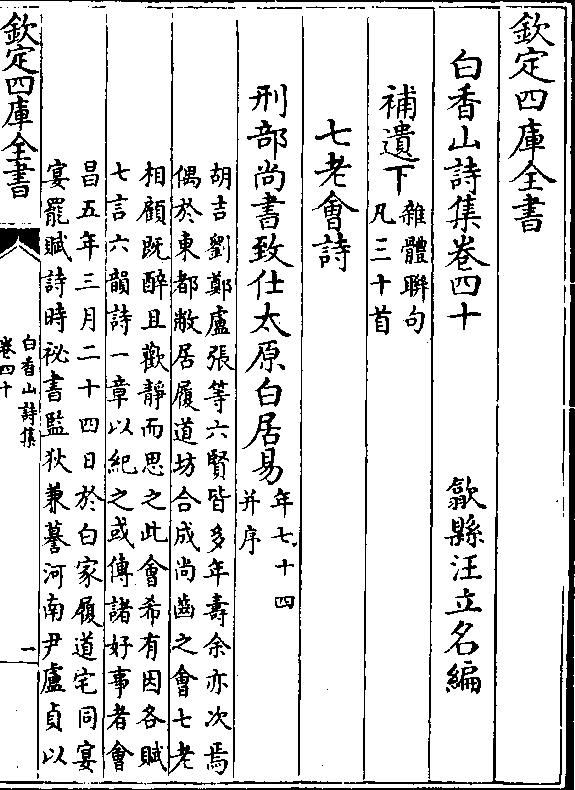 欽定四庫全書
白香山詩集卷四十
歙縣汪立名編
補遺下
雜體聯句
凡三十首
七老會詩
刑部尚書致仕太原白居易
年七十四
并序
胡吉劉鄭盧張等六賢皆多年壽余亦次焉
偶於東都敝居履道坊合成尚齒之會七老
相顧既醉且歡靜而思之此會希有因各賦
七言六韻詩一章以紀之或傳諸好事者會
昌五年三月二十四日於白家履道宅同宴
宴罷賦詩時祕書監狄兼謩河南尹盧貞以
欽定四庫全書
白香山詩集
卷四十
一